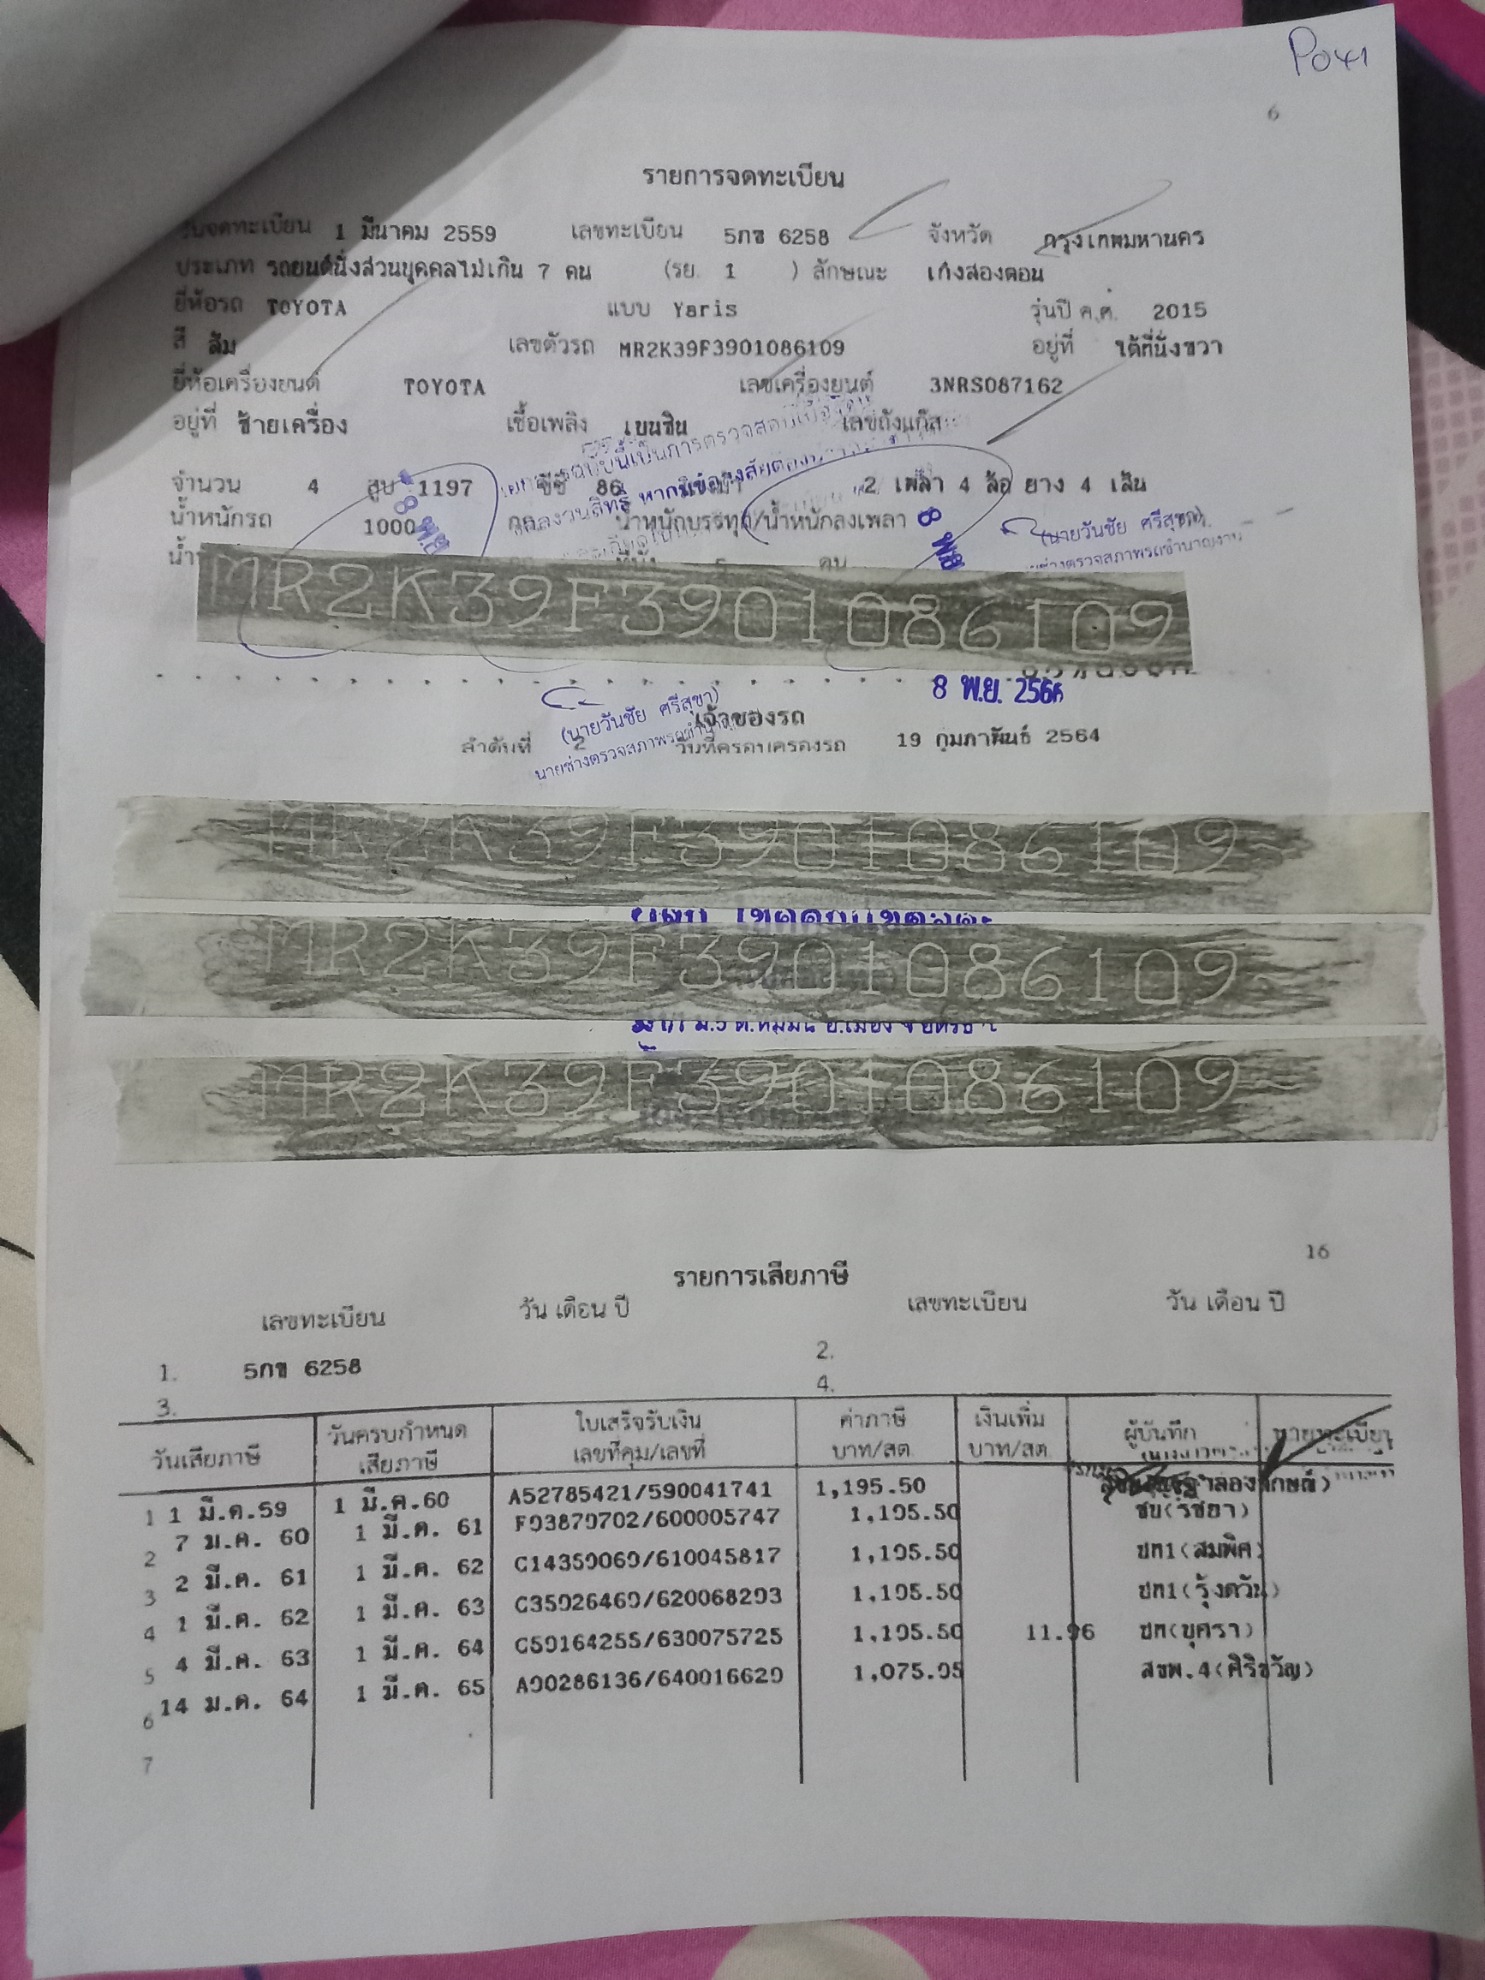 P041
6
รายการจดทะเบียน
วันจดทะเบียน 1 มีนาคม 2559 เลขทะเบียน 5กข 6258 จังหวัด กรุงเทพมหานคร
ประเภท รถยนต์นั่งส่วนบุคคลไม่เกิน 7 คน (รย. 1 ) ลักษณะ เก๋งสองตอน
ยี่ห้อรถ TOYOTA แบบ Yaris รุ่นปี ค.ศ. 2015
สี ส้ม เลขตัวรถ MR2K39F3901086109 อยู่ที่ ใต้ที่นั่งขวา
ยี่ห้อเครื่องยนต์ TOYOTA เลขเครื่องยนต์ 3NRS087162
อยู่ที่ ซ้ายเครื่อง เชื้อเพลิง เบนซิน เลขถังแก๊ส
จำนวน 4 สูบ 1197 ซีซี 86 2 เพลา 4 ล้อ ยาง 4 เส้น
น้ำหนักรถ 1000 กก น้ำหนักบรรทุก/น้ำหนักลงเพลา
8 พ.ย.
8 พ.ย.
(นายวันชัย ศรีสุขา)
นายช่างตรวจสภาพรถชำนาญงาน
MR2K39F3901086109
8 พ.ย. 2566
(นายวันชัย ศรีสุขา)
นายช่างตรวจสภาพรถชำนาญงาน
เจ้าของรถ
ลำดับที่ 2 วันที่ครอบครองรถ 19 กุมภาพันธ์ 2564
MR2K39F3901086109
MR2K39F3901086109
MR2K39F3901086109
16
รายการเสียภาษี
เลขทะเบียน วัน เดือน ปี เลขทะเบียน วัน เดือน ปี
1. 5กข 6258 2.
3. 4.
วันเสียภาษี วันครบกำหนดเสียภาษี ใบเสร็จรับเงิน เลขที่คุม/เลขที่ ค่าภาษี บาท/สต. เงินเพิ่ม บาท/สต. ผู้บันทึก นายทะเบียน
1 1 มี.ค.59 1 มี.ค.60 A52785421/590041741 1,195.50
2 7 ม.ค. 60 1 มี.ค. 61 F93879702/600005747 1,195.50 ชบ(รัชยา)
3 2 มี.ค. 61 1 มี.ค. 62 C14359069/610045817 1,195.50 ปท1(สมพิศ)
4 1 มี.ค. 62 1 มี.ค. 63 C35926469/620068293 1,195.50 ปท1(รุ้งตวัน)
5 4 มี.ค. 63 1 มี.ค. 64 C59164255/630075725 1,195.50 11.96 ปท(บุศรา)
6 14 ม.ค. 64 1 มี.ค. 65 A90286136/640016629 1,075.95 สขพ.4(ศิริขวัญ)
7